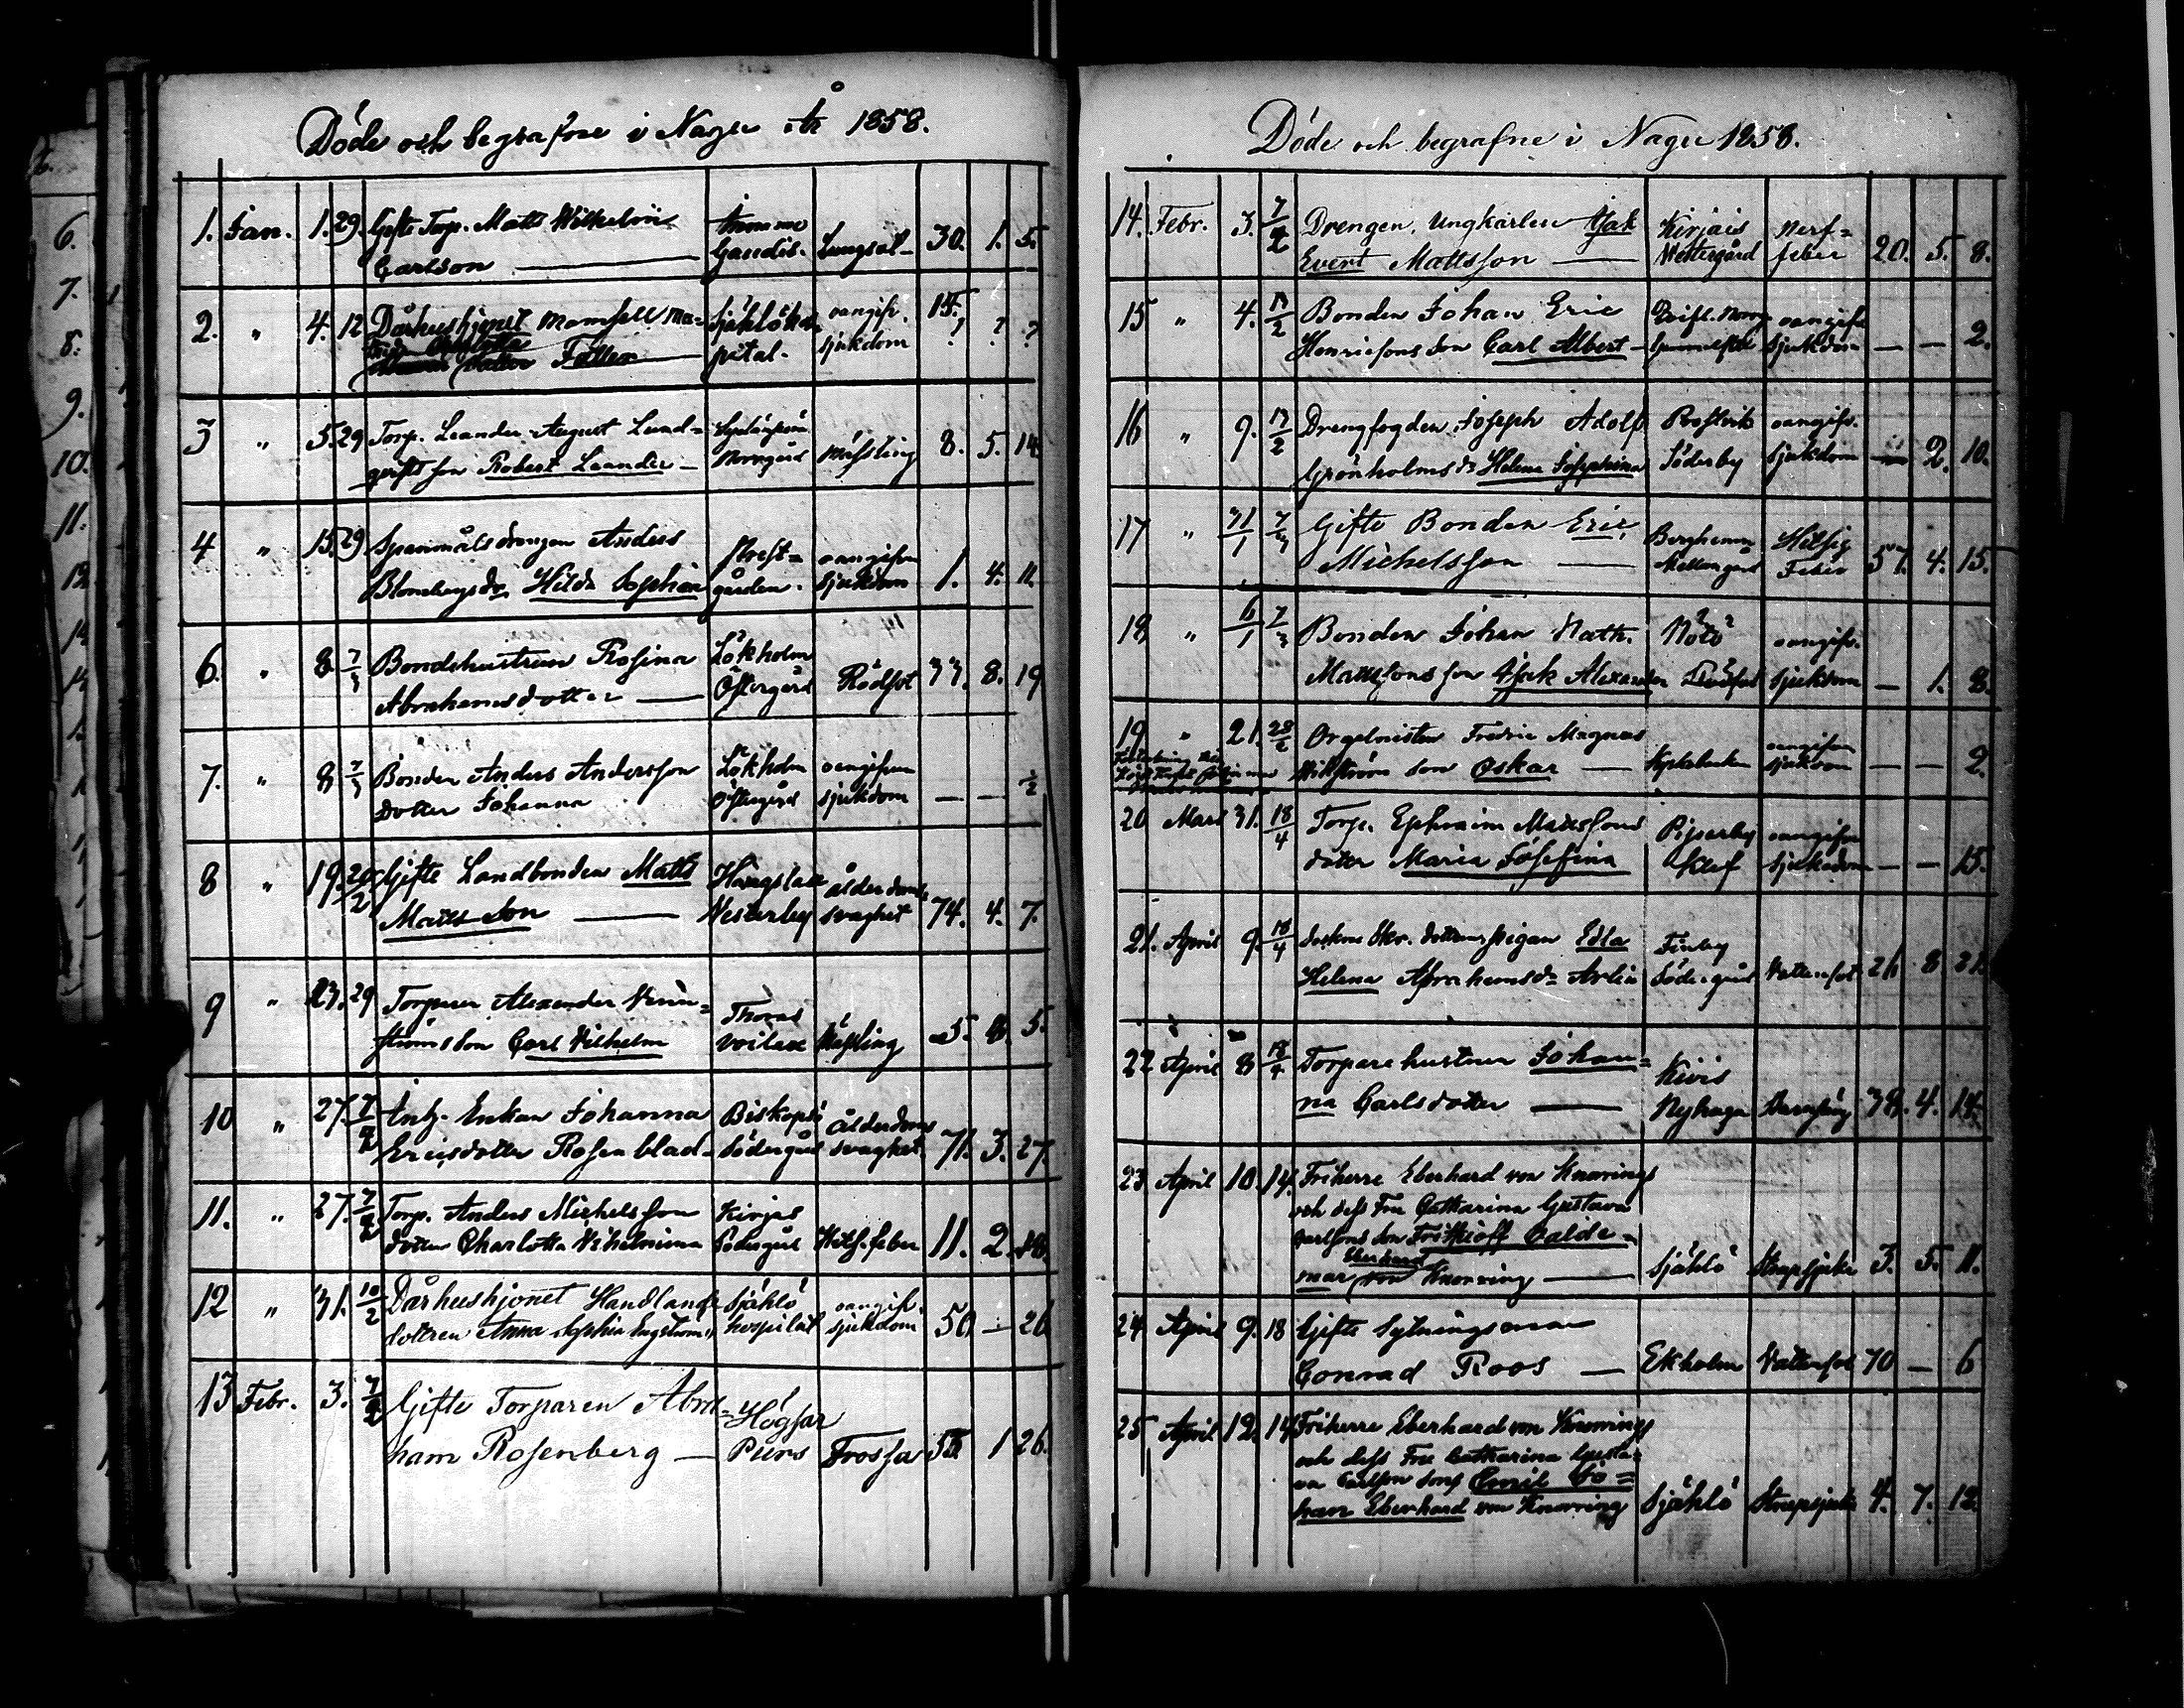 Döde och begrafne i Nagu År 1858.
1. Jan. 1. 29. Gifte Torp. Matts Wilhelm
Carlson Lungsot 30. 1. 5.
2. " 4. 12 Dårhushjonet Mamsell Själö Hos
pital. oangifn. sjukdom 15. ? ? ?
3 " 5. 29 Torp. Leander August Lund=
qvists son Robert Leander Norrgård Mässling 8. 5. 14
4 " 15. 29 Spanmåls drengen Anders
Blombergs dr Hilda Sophia Prest=
gården. oangifven sjukdom 1. 4. 11.
6. " 8 7/3 Bondehustrun Rosina
Abrahamsdotter Lökholm
Östergård Rödsot 33. 8. 19
7. " 8 7/3 Bonden Anders Andersson
dotter Johanna Lökholm
Östergård oangifven sjukdom — — 1/2
8 " 19. 20/2 Gifte Landbonden Matts
Matts Son Westerby ålderdoms
svaghet 74. 4. 7.
9 " 23. 29 Torparen Alexander
ströms Son Carl Wilhelm Mässling 5. 5.
10 " 27. 7/2 Enkan Johanna
Ericsdotter Rosenblad Biskops
Södergård Ålderdoms
svaghet. 71. 3. 27.
11. " 27. 7/2 Torp. Anders Michelsson
dotter Charlotta Wilhelmina Kirjais
Södergård Hets. feber 11. 2.
12 " 31. 10/2 Dårhushjonet Handlands
dottren Anna Sophia Engström Själö
hospital oangifn.
sjukdom 50 — 26
13 Febr. 3. 7/2 Gifte Torparen Abra=
ham Rosenberg — Högsar
Piers Frossa 55 1 26.
Döde och begrafne i Nagu 1858.
14. Febr. 3. 7/2 Drengen, Ungkarlen Isak
Evert Mattsson — Kirjais
Westergård Nerf=
feber 20. 5. 8.
15 " 4. 13/2 Bonden Johan Eric
Henricsons Son Carl Albert — oangifn
sjukdom — — 2.
16 " 9. 13/2 Drengfogden Joseph Adolf
Grönholms dr Helena Josephina Prostvik
Söderby oangifn.
sjukdom 2. 10.
17 " 31/1 7/3 Gifte Bonden Eric
Michelsson — Berghamn
Mellangård Hetsig
Feber 57. 4. 15.
18 " 6/1 7/3 Bonden Johan Math.
Mattssons son Isak Alexander Nötö oangifn.
sjukdom — 1. 8.
19 " 21. 28/2 Orgelnisten Fredric Magnus
Wikströms Son Oskar — oangifven
sjukdom — — 2.
20 Mars 31. 18/4 Torp. Ephraim Mattssons
dotter Maria Josefina Piparby
Klef oangifven
sjukdom — — 15.
21. April 9. 18/4 pigan Edla
Helena Abrahamsdr Finby
Södergård Vattensot 21. 8 21.
22 April 8 18/4 Torpare hustrun Johan=
na Carlsdotter — Nyhaga Barnsäng 38. 4. 14.
23 April 10. 14. Friherre Eberhard von Knorrings
och dess Fru Catharina Gustava
Carlsons Son Frithioff Valde=
mar Eberhard von Knorring — Själö Strupsjuka 3. 5. 11.
24 April 9. 18 Gifte Sytningsman
Conrad Roos — Ekholm Vattensot 70 — 6
25 April 12. 14 Friherre Eberhard von Knorrings
och dess Fru Catharina Gusta=
va Carlson Son Emil Jo=
han Eberhard von Knorring Själö Strupsjuka 4. 7. 12.
6.
7.
8.
9.
10.
11.
12